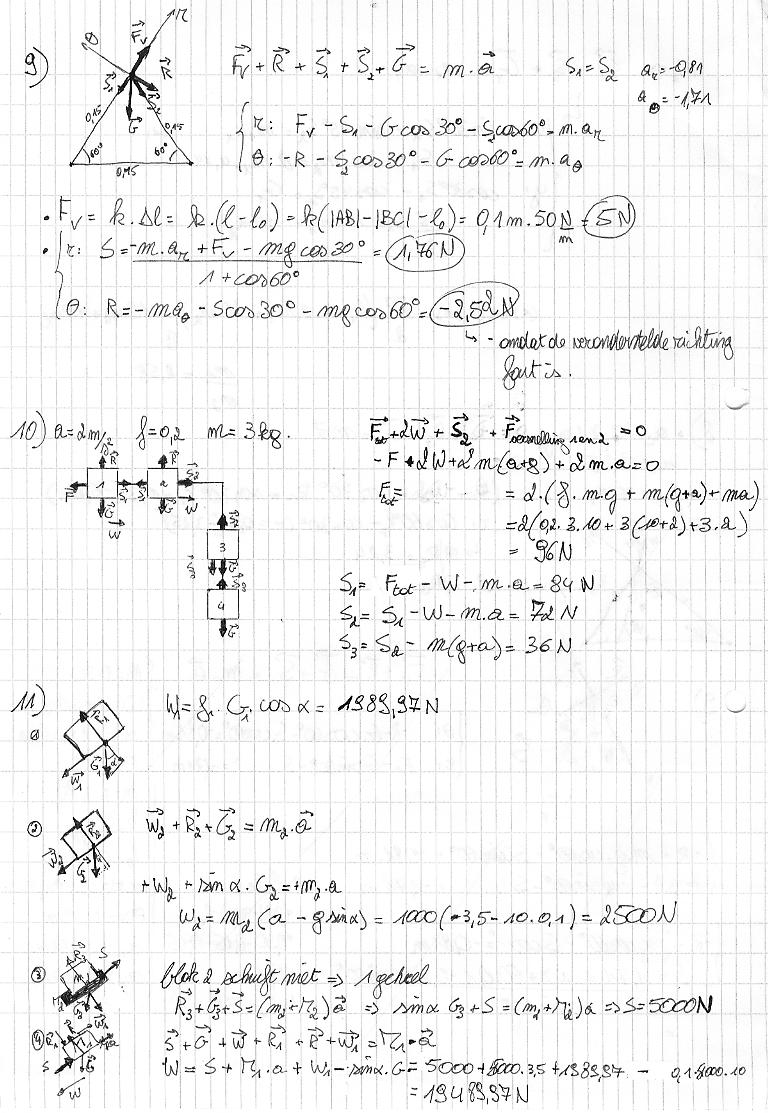 9) F⃗v + R⃗ + S⃗1 + S⃗2 + G⃗ = m.a⃗   S1 = S2   ar = -0,81
aθ = -1,71
r: Fv - S1 - G cos 30° - S2 cos 60° = m.ar
θ: -R - S2 cos 30° - G cos 60° = m.aθ
θ r F⃗v R⃗ S⃗1 G⃗
0,15 0,15
60° 60°
0,15
• Fv = k.Δl = k.(l - l0) = k(|AB| - |BC| - l0) = 0,1m.50 N/m = 5N
• r: S = (-m.ar + Fv - mg cos 30°) / (1 + cos 60°) = 1,76N
θ: R = -maθ - S cos 30° - mg cos 60° = -2,52N
↳ - omdat de veronderstelde richting
fout is.
10) a = 2m/s² f = 0,2 m = 3kg.
F⃗tot + 2W⃗ + S⃗2 + F⃗versnelling 1 en 2 = 0
-F + 2W + 2m(a+g) + 2m.a = 0
Ftot = = 2.(f.m.g + m(g+a) + ma)
= 2(0,2.3.10 + 3(10+2) + 3.2)
= 96N
F⃗ 1 R⃗ G⃗ W 2 R⃗ G⃗ W
3
4 G⃗
S1 = Ftot - W - m.a = 84 N
S2 = S1 - W - m.a = 72 N
S3 = S2 - m(g+a) = 36 N
11)
① W1 = f1.G1.cos α = 1989,97N
W⃗1 G⃗1 α
② W⃗2 + R⃗2 + G⃗2 = m2.a⃗
+W2 + sin α.G2 = +m2.a
W2 = m2(a - g sin α) = 1000(-3,5 - 10.0,1) = 2500N
③ blok 2 schuift niet ⇒ 1 geheel
R⃗3 + G⃗3 + S⃗ = (m2 + M2)a⃗ ⇒ sin α G3 + S = (m2 + M2)a ⇒ S = 5000N
④ S⃗ + G⃗ + W⃗ + R⃗1 + R⃗ + W⃗1 = M1.a⃗
W = S + M1.a + W1 - sin α.G = 5000 + 5000.3,5 + 1989,97 - 0,1.5000.10
= 19489,97N